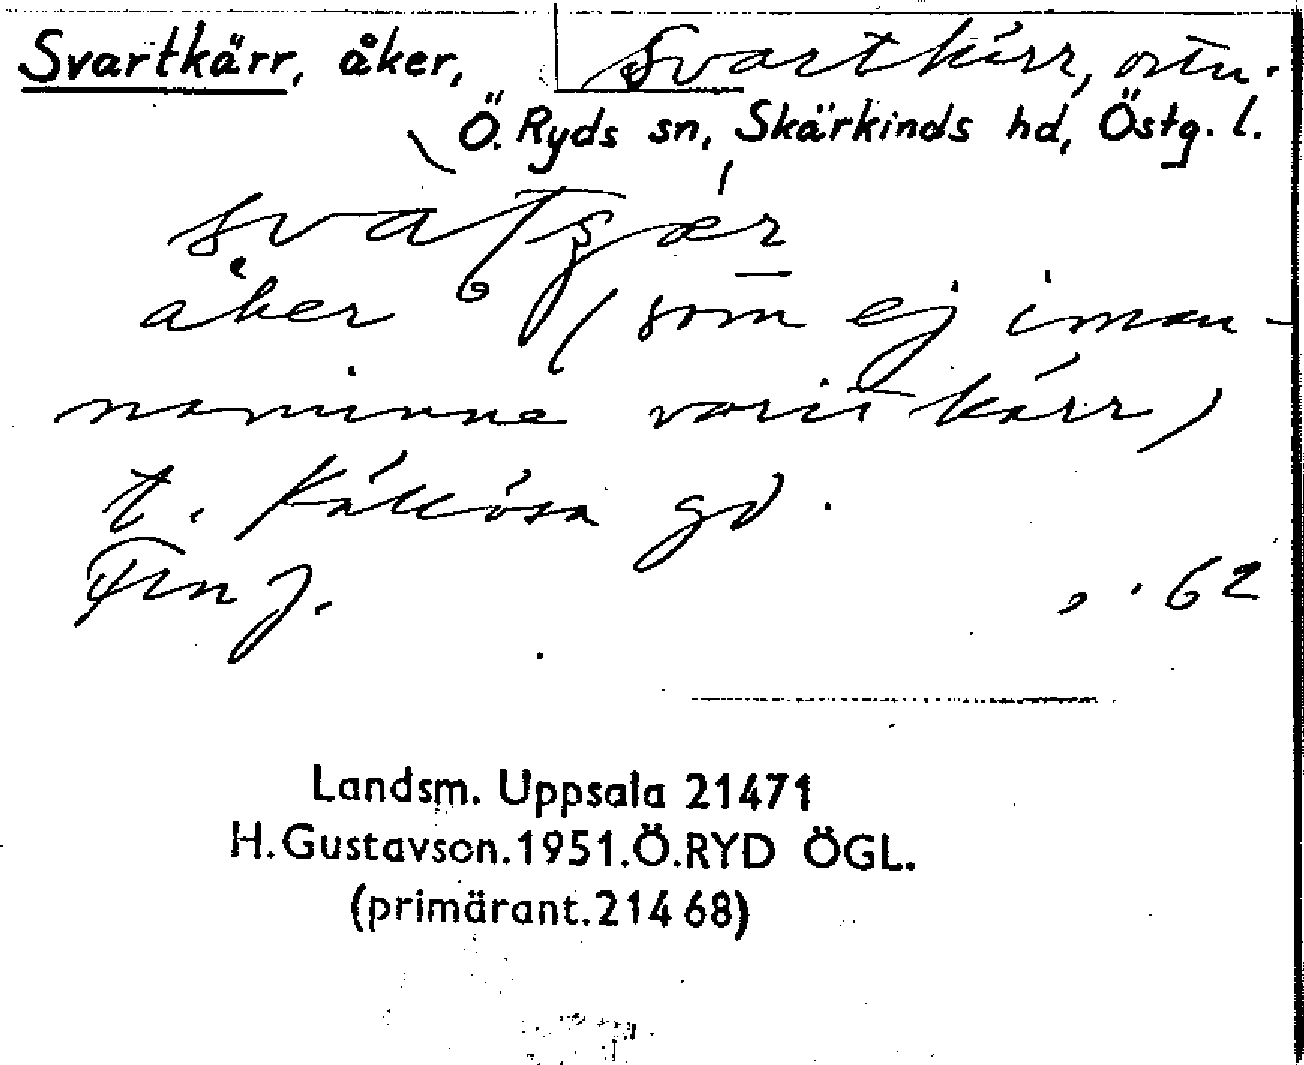 Svartkärr, åker, Svartkärr, ortn.
Ö. Ryds sn, Skärkinds hd, Östg. l.
åker (som ej i man-
naminne varit kärr)
t. Källösa gd.
62
Landsm. Uppsala 21471
H.Gustavson.1951.Ö.RYD ÖGL.
(primärant.21468)